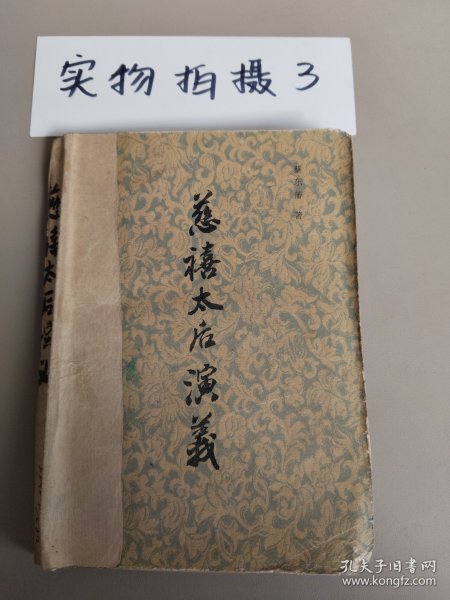 实物拍摄3
蔡东藩 著
慈禧太后演義
慈禧太后演義
孔夫子旧书网
www.kongfz.com